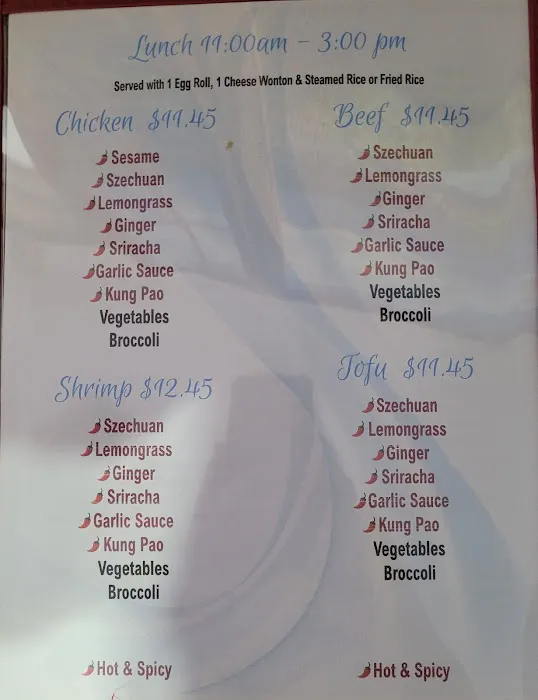 Lunch 11:00am - 3:00 pm
Served with 1 Egg Roll, 1 Cheese Wonton & Steamed Rice or Fried Rice
Chicken $11.45
Sesame
Szechuan
Lemongrass
Ginger
Sriracha
Garlic Sauce
Kung Pao
Vegetables
Broccoli
Beef $11.45
Szechuan
Lemongrass
Ginger
Sriracha
Garlic Sauce
Kung Pao
Vegetables
Broccoli
Shrimp $12.45
Szechuan
Lemongrass
Ginger
Sriracha
Garlic Sauce
Kung Pao
Vegetables
Broccoli
Tofu $11.45
Szechuan
Lemongrass
Ginger
Sriracha
Garlic Sauce
Kung Pao
Vegetables
Broccoli
Hot & Spicy
Hot & Spicy